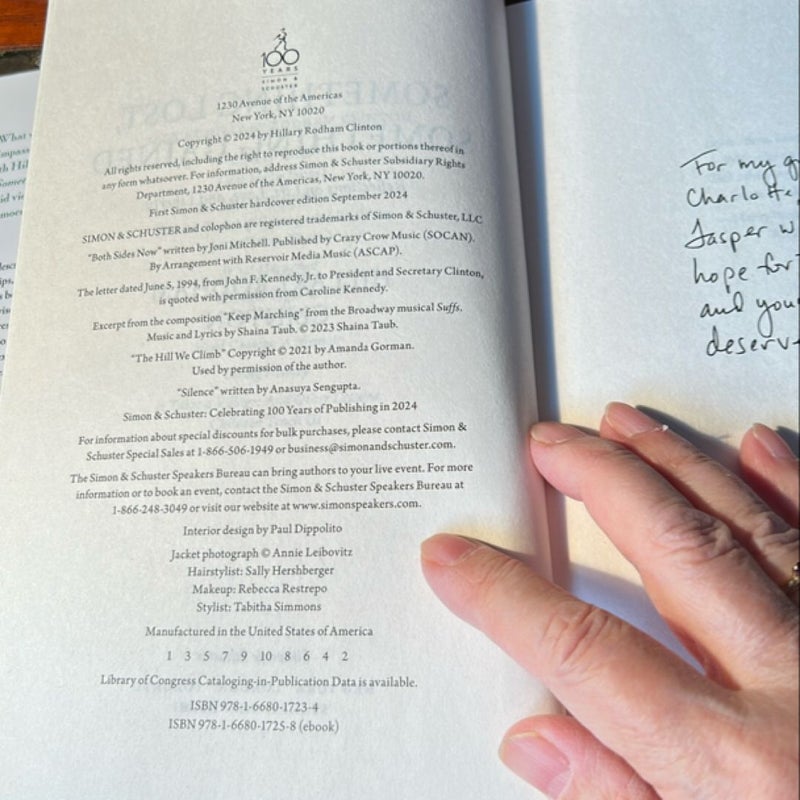 100
YEARS
SIMON &
SCHUSTER
1230 Avenue of the Americas
New York, NY 10020
Copyright © 2024 by Hillary Rodham Clinton
All rights reserved, including the right to reproduce this book or portions thereof in
any form whatsoever. For information, address Simon & Schuster Subsidiary Rights
Department, 1230 Avenue of the Americas, New York, NY 10020.
First Simon & Schuster hardcover edition September 2024
SIMON & SCHUSTER and colophon are registered trademarks of Simon & Schuster, LLC
“Both Sides Now” written by Joni Mitchell. Published by Crazy Crow Music (SOCAN).
By Arrangement with Reservoir Media Music (ASCAP).
The letter dated June 5, 1994, from John F. Kennedy, Jr. to President and Secretary Clinton,
is quoted with permission from Caroline Kennedy.
Excerpt from the composition “Keep Marching” from the Broadway musical Suffs.
Music and Lyrics by Shaina Taub. © 2023 Shaina Taub.
“The Hill We Climb” Copyright © 2021 by Amanda Gorman.
Used by permission of the author.
“Silence” written by Anasuya Sengupta.
Simon & Schuster: Celebrating 100 Years of Publishing in 2024
For information about special discounts for bulk purchases, please contact Simon &
Schuster Special Sales at 1-866-506-1949 or business@simonandschuster.com.
The Simon & Schuster Speakers Bureau can bring authors to your live event. For more
information or to book an event, contact the Simon & Schuster Speakers Bureau at
1-866-248-3049 or visit our website at www.simonspeakers.com.
Interior design by Paul Dippolito
Jacket photograph © Annie Leibovitz
Hairstylist: Sally Hershberger
Makeup: Rebecca Restrepo
Stylist: Tabitha Simmons
Manufactured in the United States of America
1 3 5 7 9 10 8 6 4 2
Library of Congress Cataloging-in-Publication Data is available.
ISBN 978-1-6680-1723-4
ISBN 978-1-6680-1725-8 (ebook)
For my g
Charlotte,
Jasper w
hope for
and you
deserv